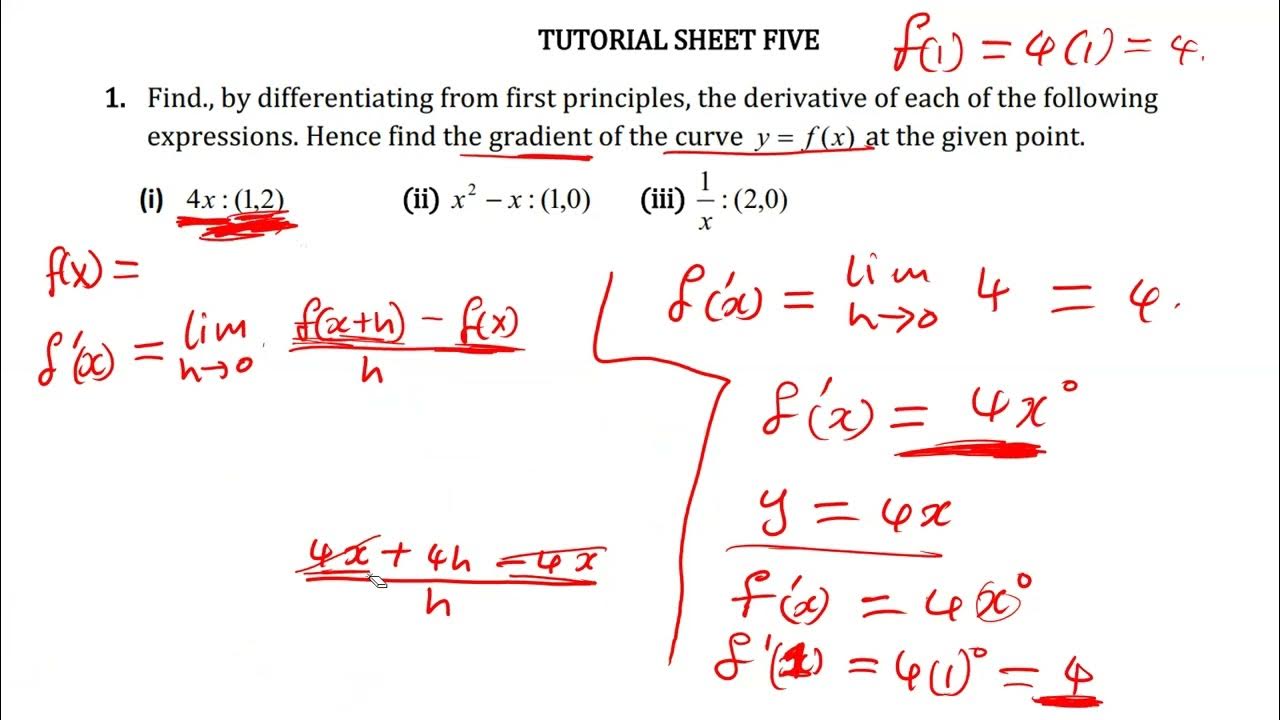 TUTORIAL SHEET FIVE
f(1) = 4(1) = 4.
1. Find., by differentiating from first principles, the derivative of each of the following
expressions. Hence find the gradient of the curve y = f(x) at the given point.
(i) 4x : (1,2) (ii) x² − x : (1,0) (iii) 1/x : (2,0)
f(x) =
f'(x) = lim h→0 (f(x+h) − f(x))/h
(4x + 4h − 4x)/h
f'(x) = lim h→0 4 = 4.
f'(x) = 4x⁰
y = 4x
f'(x) = 4x⁰
f'(1) = 4(1)⁰ = 4